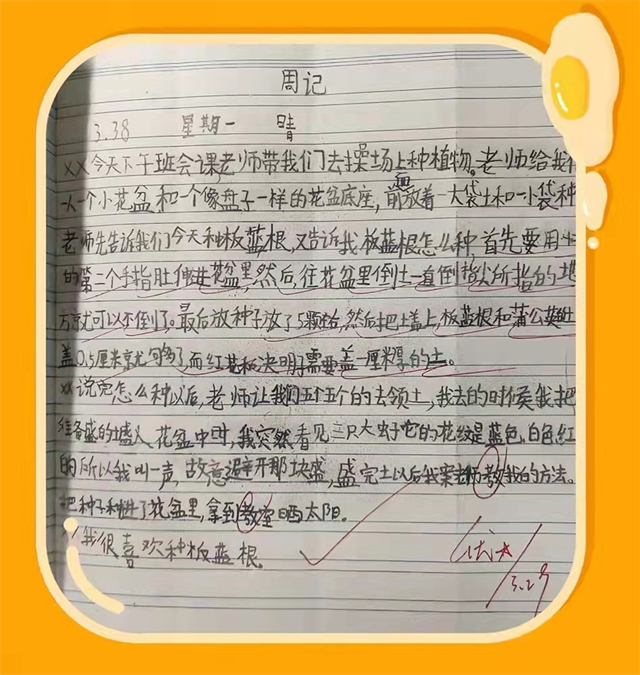 周记
3.38 星期一 晴
××今天下午班会课老师带我们去操场上种植物。老师给我们
一人一个小花盆和一个像盘子一样的花盆底座,前面放着一大袋土和一小袋种
老师先告诉我们今天种板蓝根,又告诉我板蓝根怎么种,首先要用
的第二个手指肚伸进花盆里,然后,往花盆里倒土一直倒指尖所指的地
方就可以不倒了。最后放种子放了5颗,然后把土盖上,板蓝根和蒲公英
盖0.5厘米就够了而红花和决明子需要盖一厘米厚的土。
××说完怎么种以后,老师让我们五个五个的去领土,我去的时候我把
准备盛的土 花盆中时,我突然看见 只大虫它的花纹是蓝色,白色,红
的所以我叫一声,故意避开那块盛,盛完土以后我 教我的方法。
把种子种进了花盆里,拿到教室晒太阳。
我很喜欢种板蓝根。
优★
3.29